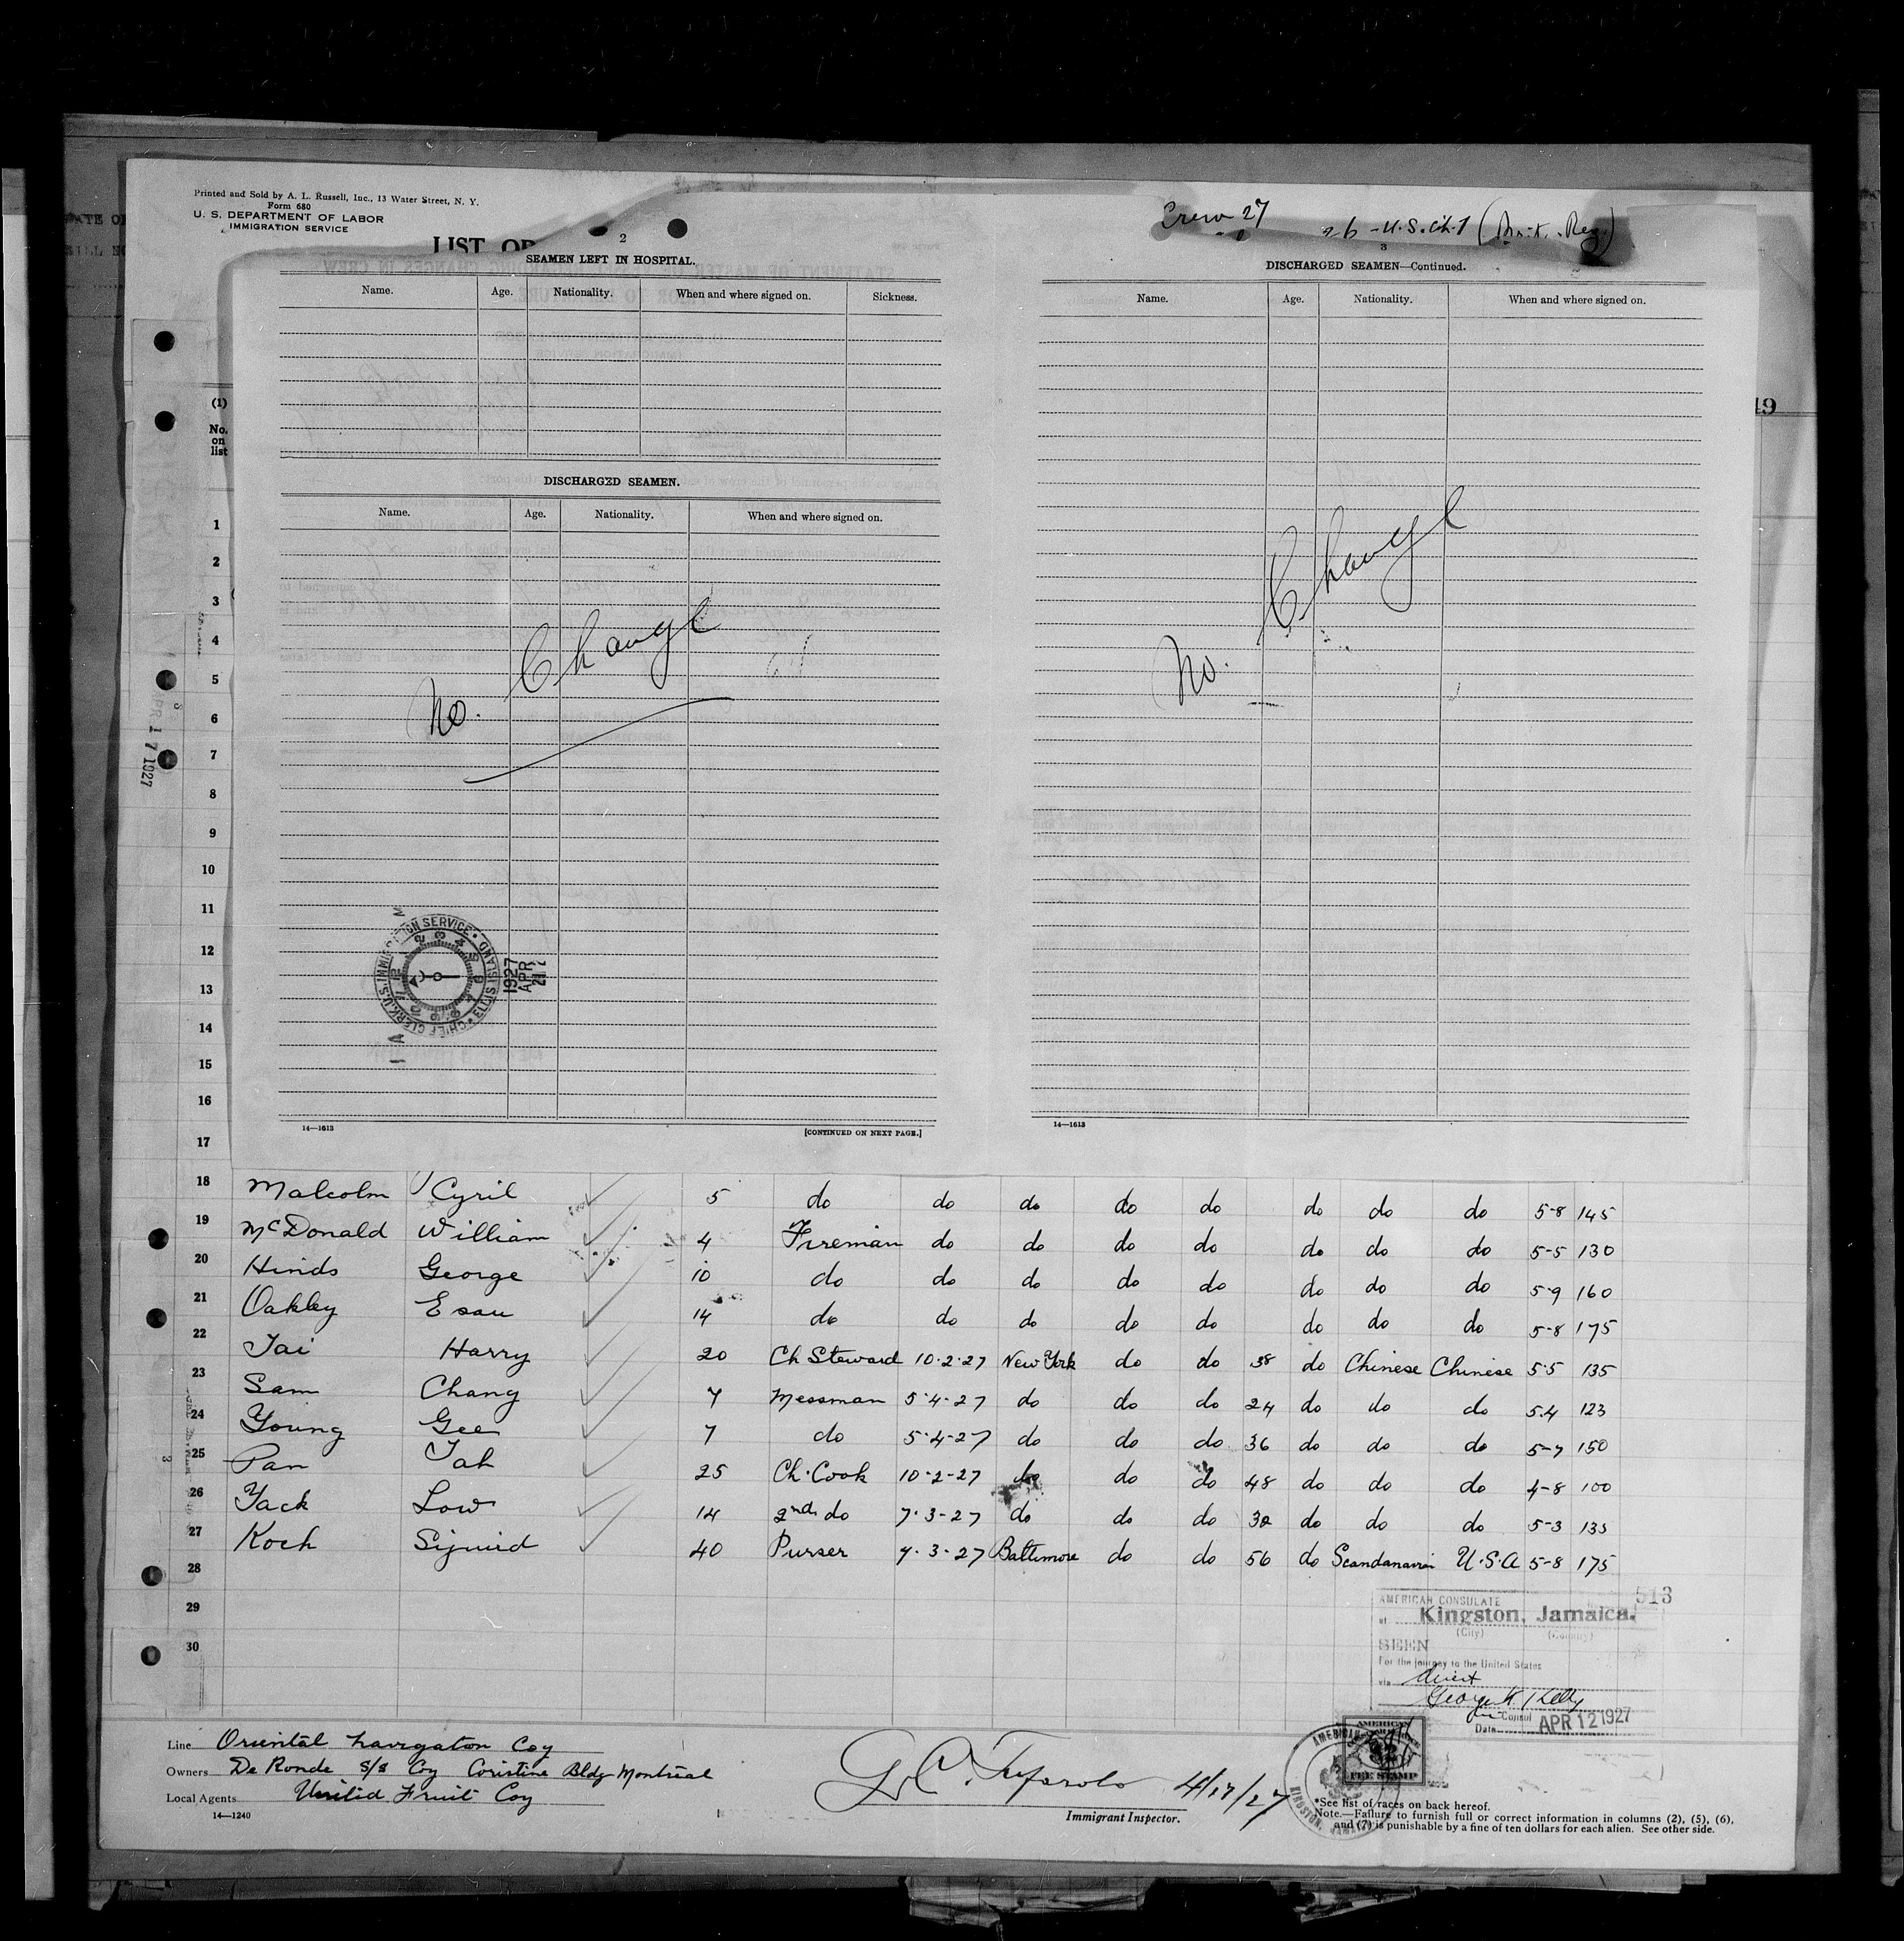 Printed and Sold by A. L. Russell, Inc., 13 Water Street, N. Y.
Form 680
U. S. DEPARTMENT OF LABOR
IMMIGRATION SERVICE
LIST OF
Crew 27
26 - U.S. Ch-1
2
SEAMEN LEFT IN HOSPITAL.
Name. Age. Nationality. When and where signed on. Sickness.
DISCHARGED SEAMEN.
Name. Age. Nationality. When and where signed on.
No. Change
14—1613 [CONTINUED ON NEXT PAGE.]
3
DISCHARGED SEAMEN—Continued.
Name. Age. Nationality. When and where signed on.
No. Change
14—1613
CHIEF CLERK, U.S. IMMIGRATION SERVICE • ELLIS ISLAND •
1927
APR
APR 17 1927
19
(1)
No.
on
list
1
2
3
4
5
6
7
8
9
10
11
12
13
14
15
16
17
18 Malcolm Cyril 5 do do do do do do do do 5-8 145
19 McDonald William 4 Fireman do do do do do do do 5-5 130
20 Hinds George 10 do do do do do do do do 5-9 160
21 Oakley Esau 14 do do do do do do do do 5-8 175
22 Tai Harry 20 Ch Steward 10-2-27 New York do do 38 do Chinese Chinese 5-5 135
23 Sam Chang 7 Messman 5-4-27 do do do 24 do do do 5-4 123
24 Young Gee 7 do 5-4-27 do do do 36 do do do 5-7 150
25 Pan Tah 25 Ch. Cook 10-2-27 do do do 48 do do do 4-8 100
26 Yack Low 14 2nd do 7-3-27 do do do 32 do do do 5-3 135
27 Koch Sigurd 40 Purser 7-3-27 Baltimore do do 56 do Scandanavian U.S.A 5-8 175
28
29
30
513
AMERICAN CONSULATE
at Kingston, Jamaica.
(City) (Country)
SEEN
For the journey to the United States
via direct
Consul
Date APR 12 1927
AMERICAN
FEE STAMP
Line Oriental Navigation Coy
Owners De Ronde S/S Coy Coristine Bldg Montreal
Local Agents United Fruit Coy
14—1240
4/17/27
Immigrant Inspector.
*See list of races on back hereof.
Note.—Failure to furnish full or correct information in columns (2), (5), (6),
and (7) is punishable by a fine of ten dollars for each alien. See other side.